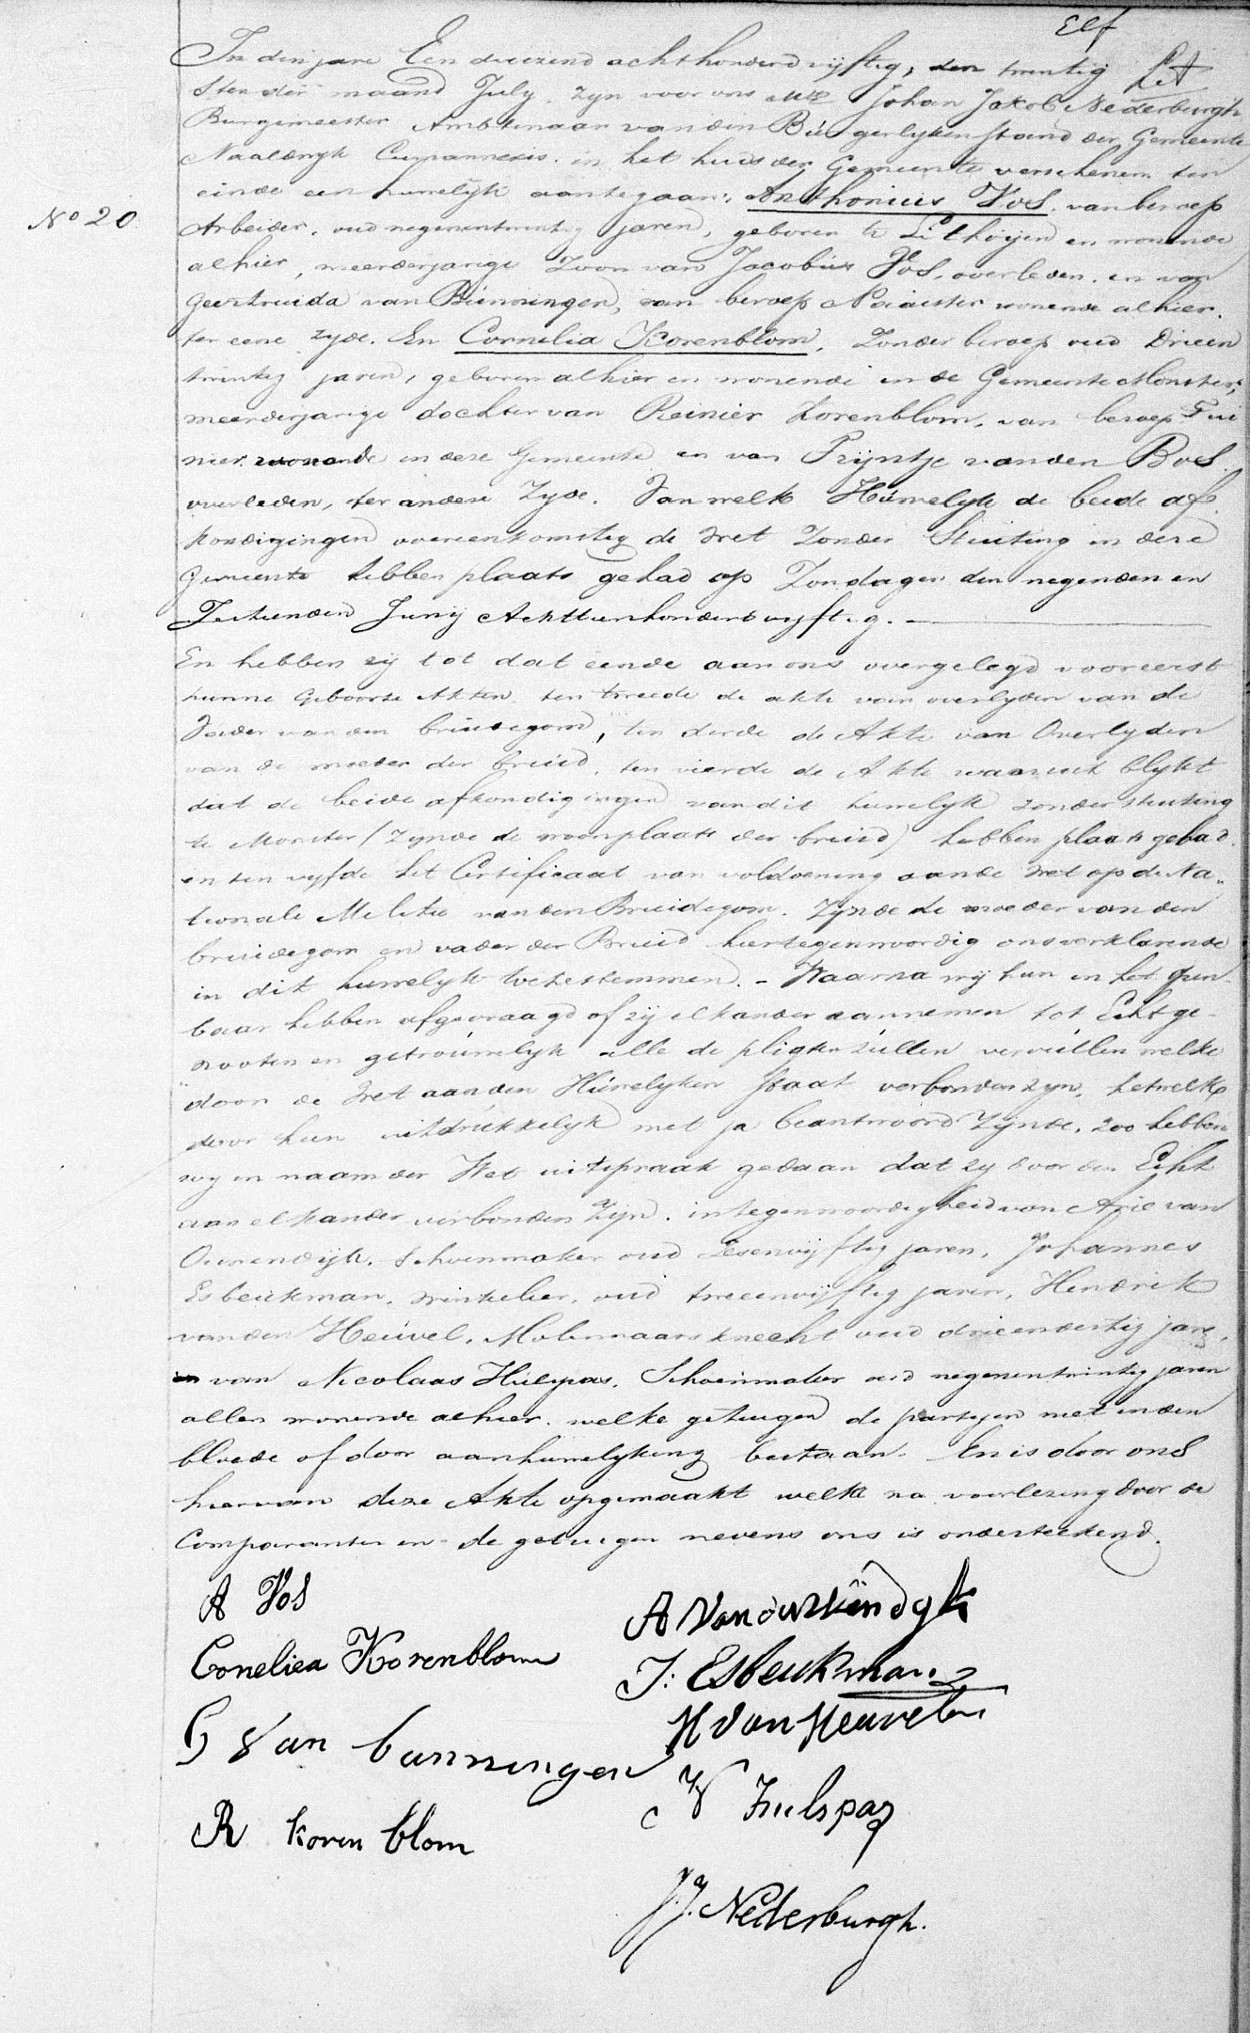 Elf
In den jare Een duizend achthonderd vyftig, den twintig
sten der maand July, zyn voor ons Mr Johan Jakob Nederburgh
Burgemeester Ambtenaar van den Burgerlyken stand der Gemeente
Naaldwyk Cumannexis, in het huis der Gemeente verschenen ten
einde een huwelyk aantegaan: Anthonius Vos, van beroep
No 20
Arbeider, oud negenentwintig jaren, geboren te Lithoijen en wonende
alhier, meerderjarige Zoon van Jacobus Vos, overleden, en van
Geertruida van Bunningen, van beroep Naaister wonende alhier,
ter eene zyde. En Cornelia Korenblom, Zonder beroep oud Drieen
twintig jaren, geboren alhier en wonende in de Gemeente Monster,
meerderjarige dochter van Reinier Korenblom, van beroep Tui
nier wonende in deze Gemeente en van Tryntje van den Bos
overleden, ter andere Zyde. Van welk Huwelyk de beide af
kondigingen overeenkomstig de Wet Zonder Stuiting in deze
Gemeente hebben plaats gehad op Zondagen den negenden en
Zestienden Juny Achttienhonderd vyftig.
En hebben zij tot dat einde aan ons overgelegd vooreerst
hunne Geboorte Akten, ten tweede de akte van overlyden van de
Vader van den bruidegom, ten derde de Akte van Overlyden
van de moeder der bruid, ten vierde de Akte waaruit blykt
dat de beide afkondigingen van dit huwelyk zonder stuiting
te Monster (Zynde de woonplaats der bruid) hebben plaats gehad.
en ten vyfde het Certificaat van voldoening aan de Wet op de Na„
tionale Militie van den Bruidegom. Zynde de moeder van den
bruidegom en vader der Bruid hiertegenwoordig ons verklarende
in dit huwelyk toetestemmen. - Waarna wij hun in het open
baar hebben afgevraagd of zij elkander aannemen tot Echtge-
nooten en getrouwelyk alle de pligten zullen vervullen welke
door de Wet aan den Huwelyken staat verbonden zyn, hetwelk
door hen uitdrukkelyk met ja beantwoord Zynde, zoo hebben
wy in naam der Wet uitspraak gedaan dat zy door den Echt
aan elkander verbonden Zyn. in tegenwoordigheid van Arie van
Ouwendijk, Schoenmaker oud Zesenvyftig jaren, Johannes
Esbeukman, winkelier, oud tweeenvyftig jaren, Hendrik
van den Heuvel, Molenaarsknecht oud drieendertig jaren,
en van Nicolaas Hulspas, Schoenmaker oud negenentwintig jaren
allen wonende alhier. welke getuigen de partyen niet in den
bloede of door aanhuwelyking bestaan. En is door ons
hiervan deze Akte opgemaakt welke na voorlezing door de
Comparanten en de getuigen nevens ons is onderteekend.
A Vos
Coneliea Korenblom
G Van bunningen
R koren blom
A Van ouwendyk
J: Esbeukman
H Van Heuvelen
N Hulspas
J.J. Nederburgh.